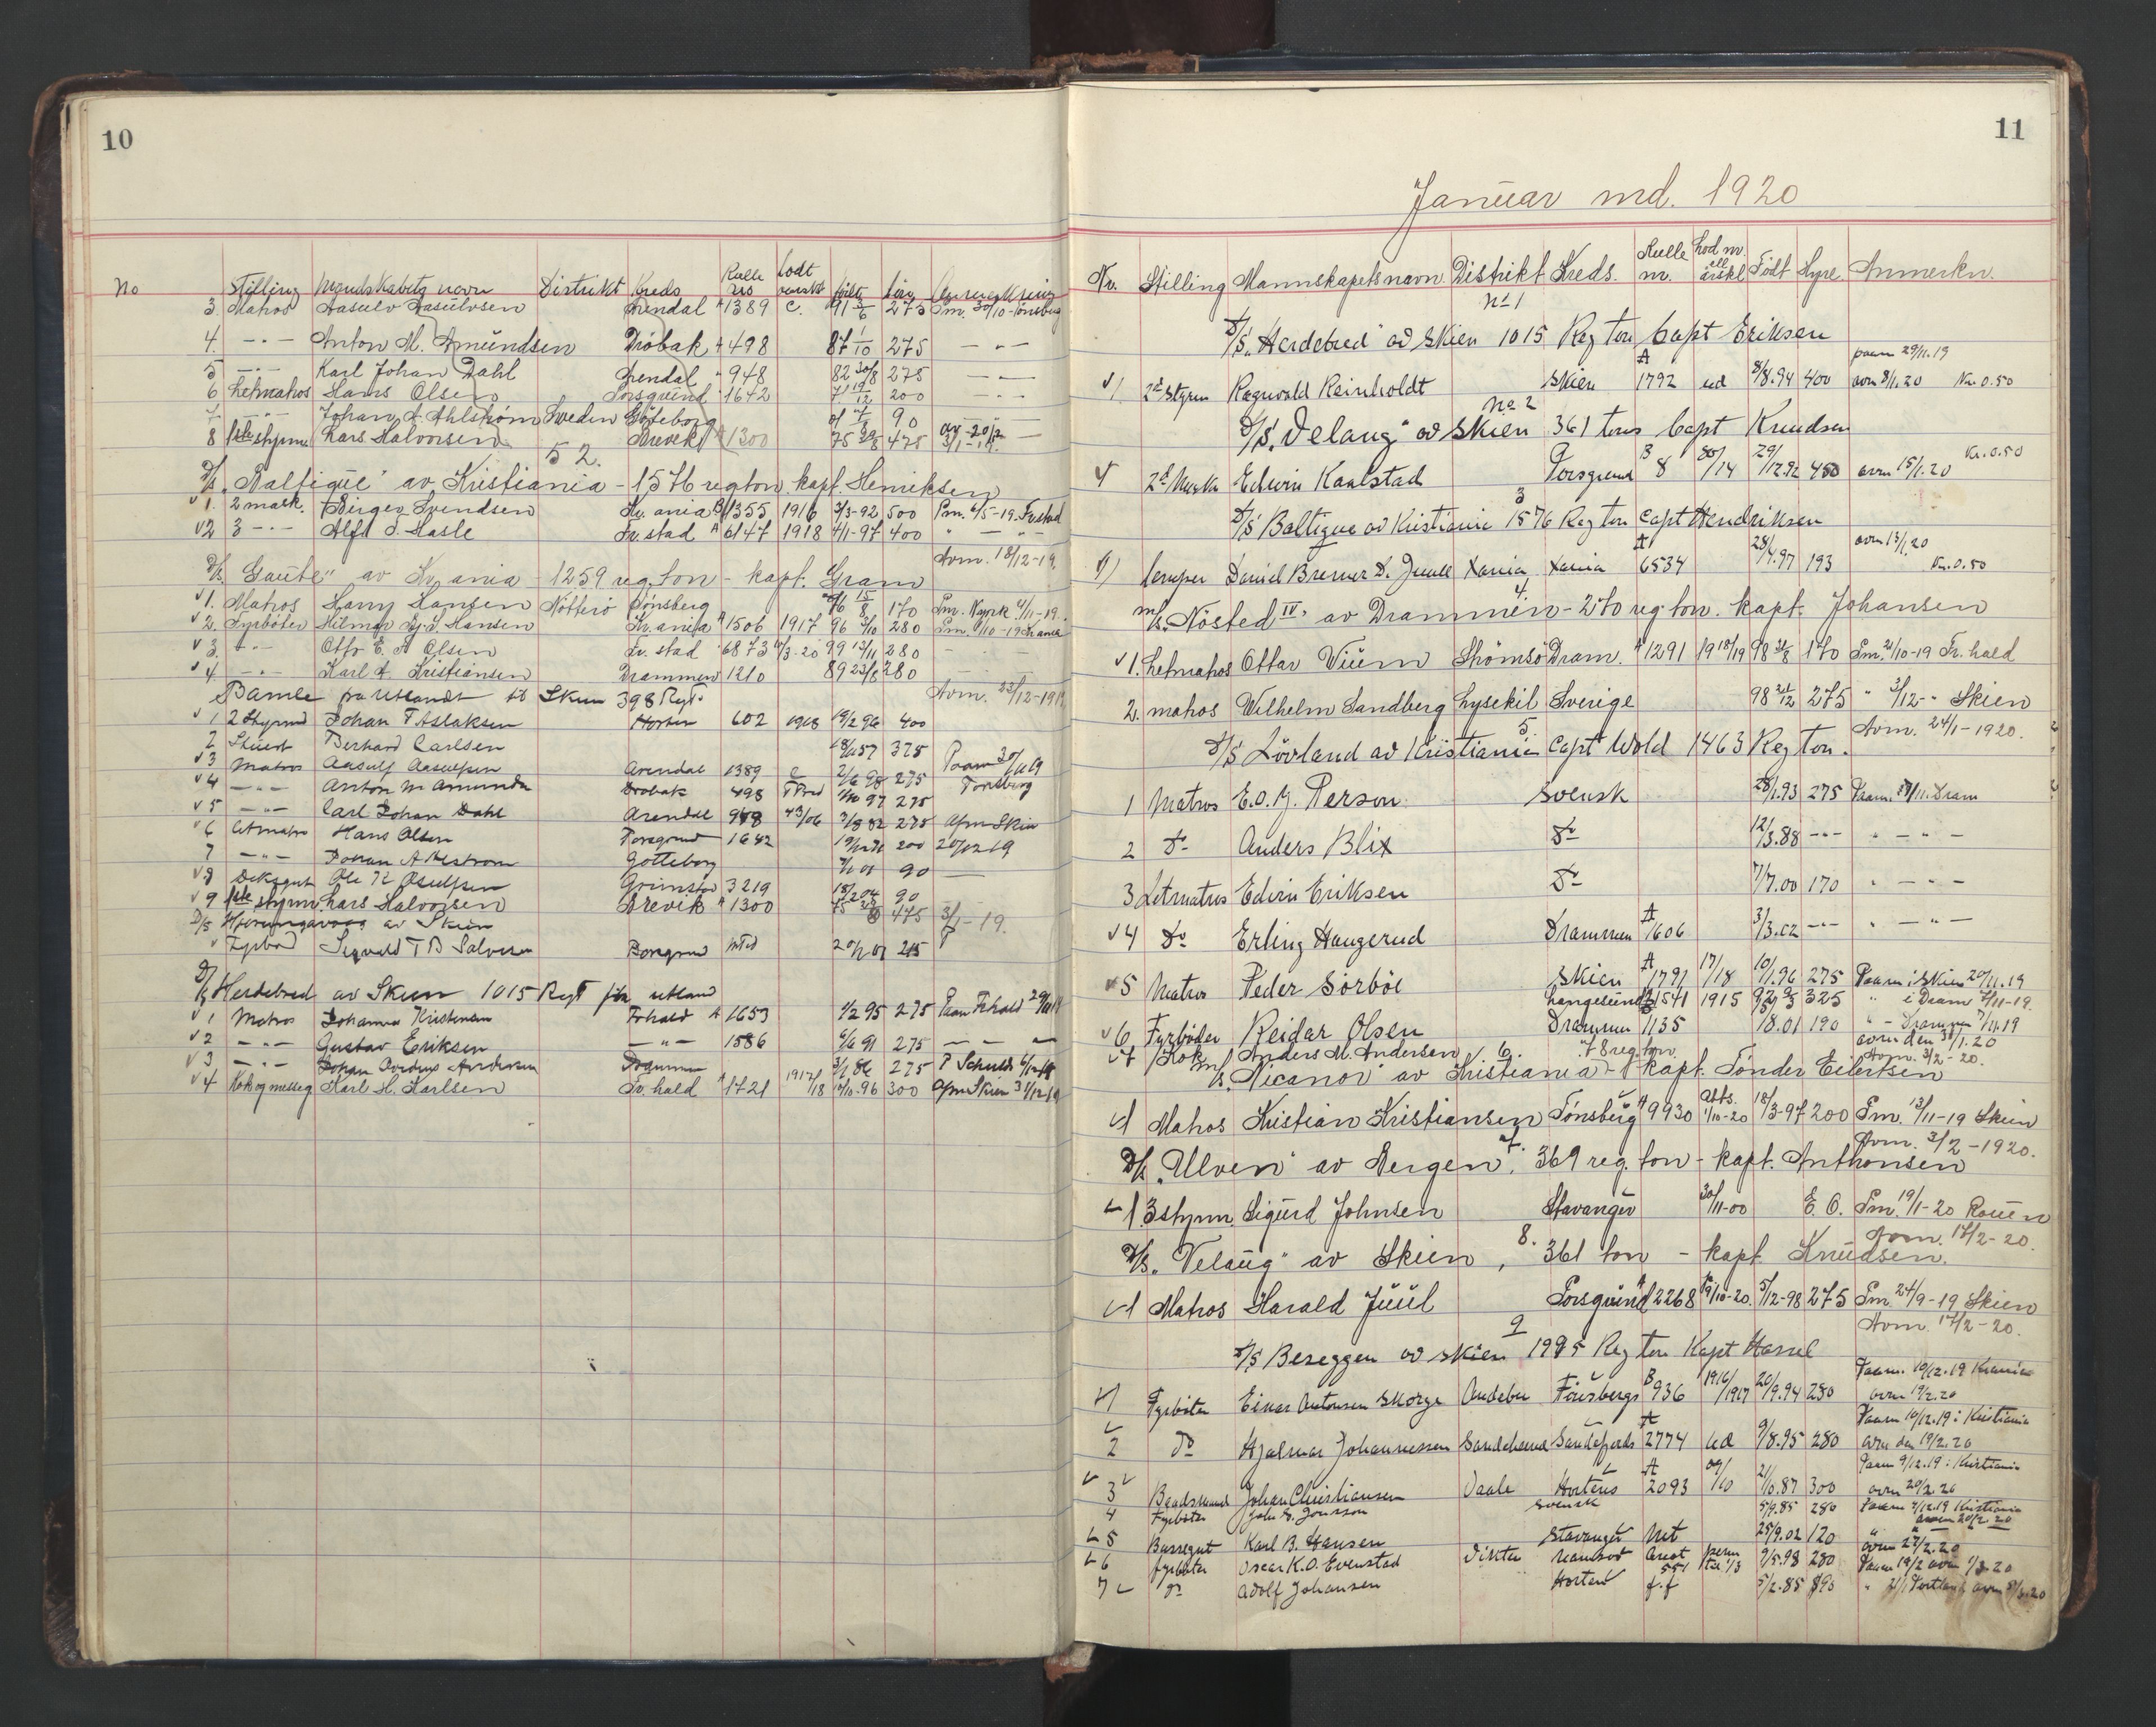 10
No Stilling Mandskabets navn Distrikt Kreds Rulle No Lodt født hyre Anmerkning
3. Matros Aasulv Aasulvsen Arendal A 1389 C. 91 2/6 275 Pm. 30/10- Tönsberg
4. -"- Anton M. Amündsen Dröbak A 498 87 1/10 275 - " -
5 -"- Karl Johan Dahl Arendal " 948 82 30/8 275 - " -
6 Letmatros Hans Olsen Porsgründ " 1642 71 19/12 200 - " -
7. -"- Johan A. Ahlström Sweden Göteborg 01 7/8 90
8 1ste styrm Lars Halvorsen Brevik A 1300 75 29/8 475 3/1-19.
52.
D/s. "Baltique" av Kristiania - 1576 regton. kapt. Henriksen
1. 2 mask. Birger Svendsen Kr. ania B 1355 1916 3/3-92 500 Pm. 6/5-19. Frstad
2 3 -"- Alf S. Hasle Fr. stad A 6147 1918 4/1-97 400 " - " -
Avm. 18/12-19.
D/s. "Gaute" av Kr. ania - 1259 reg. ton - kapt. Gram
1. Matros Harry Hansen Nötterö Tönsberg 96 15/8 170 Pm. 4/11-19.
2. Fyrböter Hilmar Hansen Kr. ania A 1506 1917 96 3/10 280
3. -"- Otto E. A Olsen Fr. stad 6873 99 13/11 280 -
4 -"- Karl A. Kristiansen Drammen 1210 89 23/8 280
Avm. 23/12-1919
Bamle fra Utlandt til Skien 398 Regt.
1 2 Styrmd Johan T Aslaksen Horten 602 1918 19/2 96 400
2 Stüert Berhard Carlsen 18/11 57 375
3 Matros Aasulf Aasulfsen Arendal 1389 C 2/6 98 275 Paam 30/10 19
4 -"- Anton M Amunda Drobak 498 1/10 97 275 Tonsberg
5 -"- Carl Johan Dahl Arendal 948 43/06 3/8 82 275 Afm Skien
6 Letmatro Hans Olsen Porsgrund 1642 19/12 71 200 20/12 19
7 -"- Johan A Alstrom Gotteborg 7/1 01 90 -
8 Deksgut Ole K Osulfsen Grimstad 3219 18/2 04 90
9 1ste styrm Lars Halvorsen Brevik A 1300 75 29/8 475 3/1-19.
D/S av Skien
Fyrbød Sigvald T B Salvesen Porsgrund 20/1 01 215
D/s Herdebred av Skien 1015 Regt fra utland
1 Matros Johannes Kristensen Frhald A 1653 1/2 95 275 Paam Frhald 29/11 19
2 -"- Gustav Eriksen -"- 1586 6/6 91 275 - - -
3 -"- Johan Andersen Drammen 3/1 86 275
4 Kok og messeg Karl H. Karlsen Fr. hald A 1721 1917/18 12/10.96 300 Afm Skien 31/12 19
11
Januar md. 1920
Nr. Stilling Mannskapets navn Distrikt Kreds. Rulle nr. Lod nr. ell. årskl Födt Hyre Anmerkn.
No 1
D/S. "Herdebred" av Skien 1015 Reg ton Capt Eriksen
paam 29/11.19
1 2d Styrm Ragnvald Reinholdt Skien A 1792 ud 8/8.94 400 avm 8/1.20 Kr. 0.50
No 2
D/S. "Velaug" av Skien 361 tons Capt Knudsen
1 2d Mask Edwin Kaalstad Porsgrund B 8 80/14 29/12.92 450 avm 15/1.20 Kr. 0.50
3
D/S Baltique av Kristiania 1576 Reg ton Capt Hendriksen
1) Lemper Daniel Bremer D. Juell Xania Xania A 6534 28/4.97 193 avm 13/1.20 Kr. 0.50
4.
M/s. "Nösted IV" av Drammen - 270 reg. ton. kapt. Johansen
1. Letmatros Ottar Viüm Strömsö Dram. A 1291 1918/19 98 31/8 170 Pm. 2/10-19 Fr. hald
2. matros Wilhelm Sandberg Lysekil Sverige 98 21/12 275 " 3/12-" Skien
Avm. 24/1-1920.
5.
D/S Lövland av Kristiania Capt Wold 1463 Reg ton.
1 Matros E.O.Y. Person Svensk 28/1.93 275 Paam. 17/11. Dram
2 Do Anders Blix Do 12/3.88 -"- " - " -
3 Letmatros Edvin Eriksen Do 7/7.00 170 " - " -
4 Do Erling Haugerud Drammen A 1606 3/3.02 -"- " - " -
5 Matros Peder Sörböe Skien A 1791 17/18 10/1.96 275 Paam i Skien 20/11.19
6 Fyrböder Reidar Olsen Drammen 1135 18.01 190 " - Drammen 7/11.19
avm den 31/1.20
7 Kok Anders M. Andersen Langesünd B 1541 1915 325 " i Dram 7/11-19.
Avm. 3/2-20.
6. 78 reg ton
M/s. "Nicanor" av Kristiania - kapt. Tönder Eilertsen
1 Matros Kristian Kristiansen Tönsberg A 9930 Uts. 1/10-20 18/3-97 200 Pm. 13/11-19 Skien
Avm. 3/2-1920.
7.
D/s. "Ulven" av Bergen, 369 reg. ton - kapt. Anthonsen
1 3 styrm. Sigürd Johnsen Stavanger 30/11-00 E. O. Pm. 19/1-20 Rouen
Avm. 17/2-20.
8.
D/s. "Velaüg" av Skien, 361 ton - kapt. Knüdsen.
1 Matros Harald Jüül Porsgründ A 2268 19/10-20. 5/12-98 275 Pm. 24/9-19 Skien
Avm. 17/2-20.
9
D/S Beseggen av Skien 1995 Reg ton Kapt Hassel
Paam. 10/12.19 Krania
1 Fyrböter Einar Antonsen Skorge Andebu Tönsbergs B 936 1916/1917 20/9.94 280 avm 19/2.20
Paam 10/12.19 i Kristiania
2 Do Hjalmar Johannessen Sandeherred Sandefjords A 2774 ud 9/8.95 280 avm den 19/2.20
Paam 9/12.19 i Kristiania
3 Baadsmand Johan Christiansen Vaale Hortens A 2093 09/10 21/10.87 300 avm 20/2.20
4 Fyrböter John G. Jonsson Svensk 5/9.85 280 Paam 9/12.19 Kristiania
avm 20/2.20
5 Dæksgut Karl B. Hansen Stavanger Met 25/9.02 120 avm 27/2.20
6 fyrböter Oscar K.O. Evenstad Namsos 9/5.98 280 Paam 19/2 avm 1/3.20
7 Do Adolf Johansen Horten f.f 5/2.85